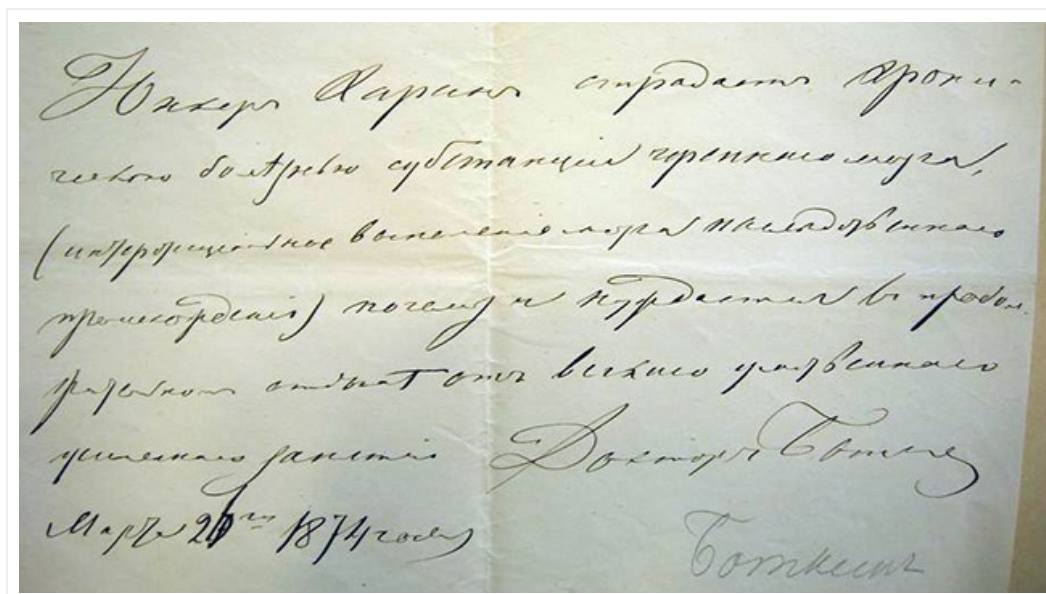 Юнкеръ Харинъ страдаетъ хрони-
ческою болѣзнью субстанціи черепнаго мозга,
(интерстиціальное воспаленіе мозга наслѣдственнаго
происхожденія) почему и нуждается въ продол-
жательномъ отдыхѣ отъ всякаго умственнаго
усиленнаго занятія Докторъ Боткинъ
Марта 20го 1874 года
Боткинъ